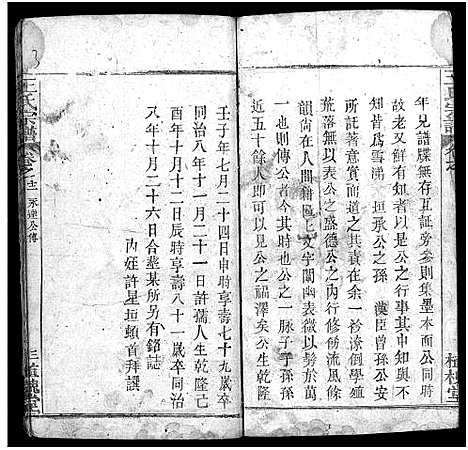 王氏宗譜
年兄譜牒無存互証旁參則集墨本而公同時
故老又鮮有知者以是公之行事其中知與不
知舊為雪涕 垣承公之孫 漢臣曾孫公安
所著之意實而道之其表余一衿潦倒學殖
荒落無以表公之盛德公之內行修飭流風餘
韻尚在人間藉區區文字闡幽表微以勢於萬
一也則傳公者今其宗公之一脉子子孫孫
近五十餘人即可以見公之福澤矣公生乾隆
植槐堂
壬子年七月二十四日申時享壽七十九歲卒
同治八年十一月二十一日許孺人生乾隆己
酉年十月二十二日辰時享壽八十一歲卒同治
八年十月二十六日合塟某所另有銘誌
內姪許星垣頓首拜譔
王氏宗譜
卷之
永達公傳
三
植槐堂